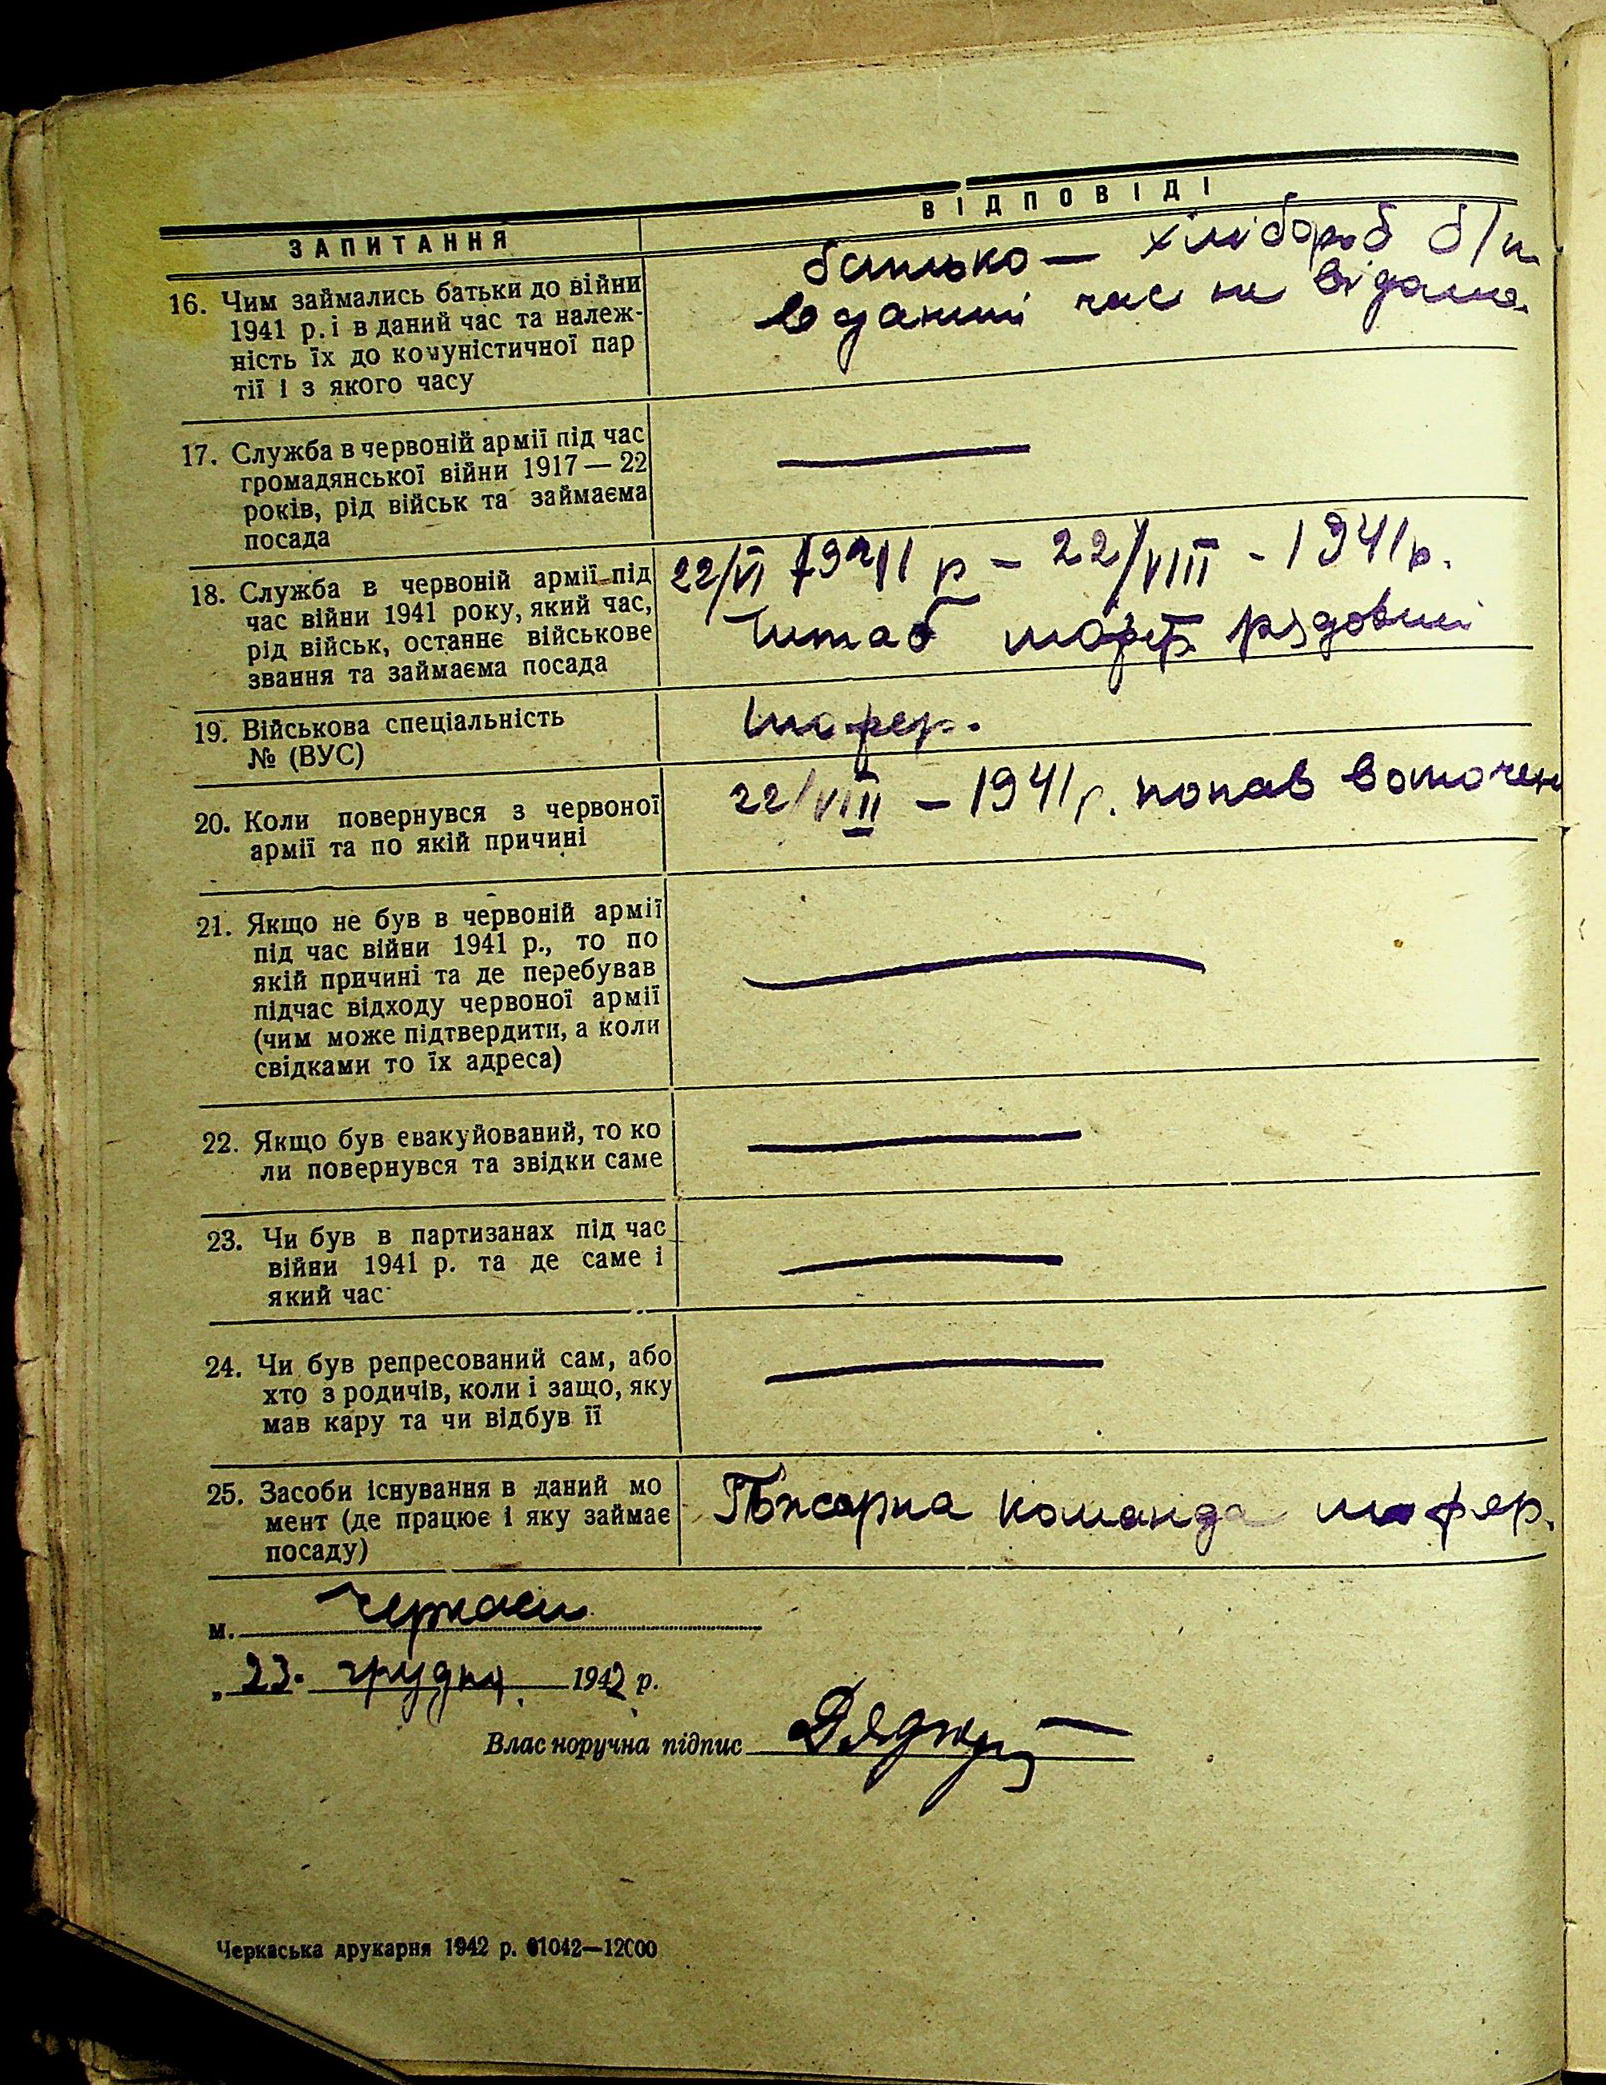 ЗАПИТАННЯ
ВІДПОВІДІ
16. Чим займались батьки до війни
1941 р. і в даний час та належ-
ність їх до комуністичної пар
тії і з якого часу
батько — хлібороб б/п
в даний час не відомо
17. Служба в червоній армії під час
громадянської війни 1917 — 22
років, рід військ та займаєма
посада
—
18. Служба в червоній армії під
час війни 1941 року, який час,
рід військ, останнє військове
звання та займаєма посада
22/VI 1941 р — 22/VIII - 1941 р.
Штаб шофер рядовий
19. Військова спеціальність
№ (ВУС)
шофер.
20. Коли повернувся з червоної
армії та по якій причині
22/VIII — 1941 р. попав воточен
21. Якщо не був в червоній армії
під час війни 1941 р., то по
якій причині та де перебував
підчас відходу червоної армії
(чим може підтвердити, а коли
свідками то їх адреса)
—
22. Якщо був евакуйований, то ко
ли повернувся та звідки саме
—
23. Чи був в партизанах під час
війни 1941 р. та де саме і
який час
—
24. Чи був репресований сам, або
хто з родичів, коли і защо, яку
мав кару та чи відбув її
—
25. Засоби існування в даний мо
мент (де працює і яку займає
посаду)
Пожарна команда шофер.
м. Черкаси
„ 23. грудня 1942 р.
Влас норучна підпис
Черкаська друкарня 1942 р. 01042—12000